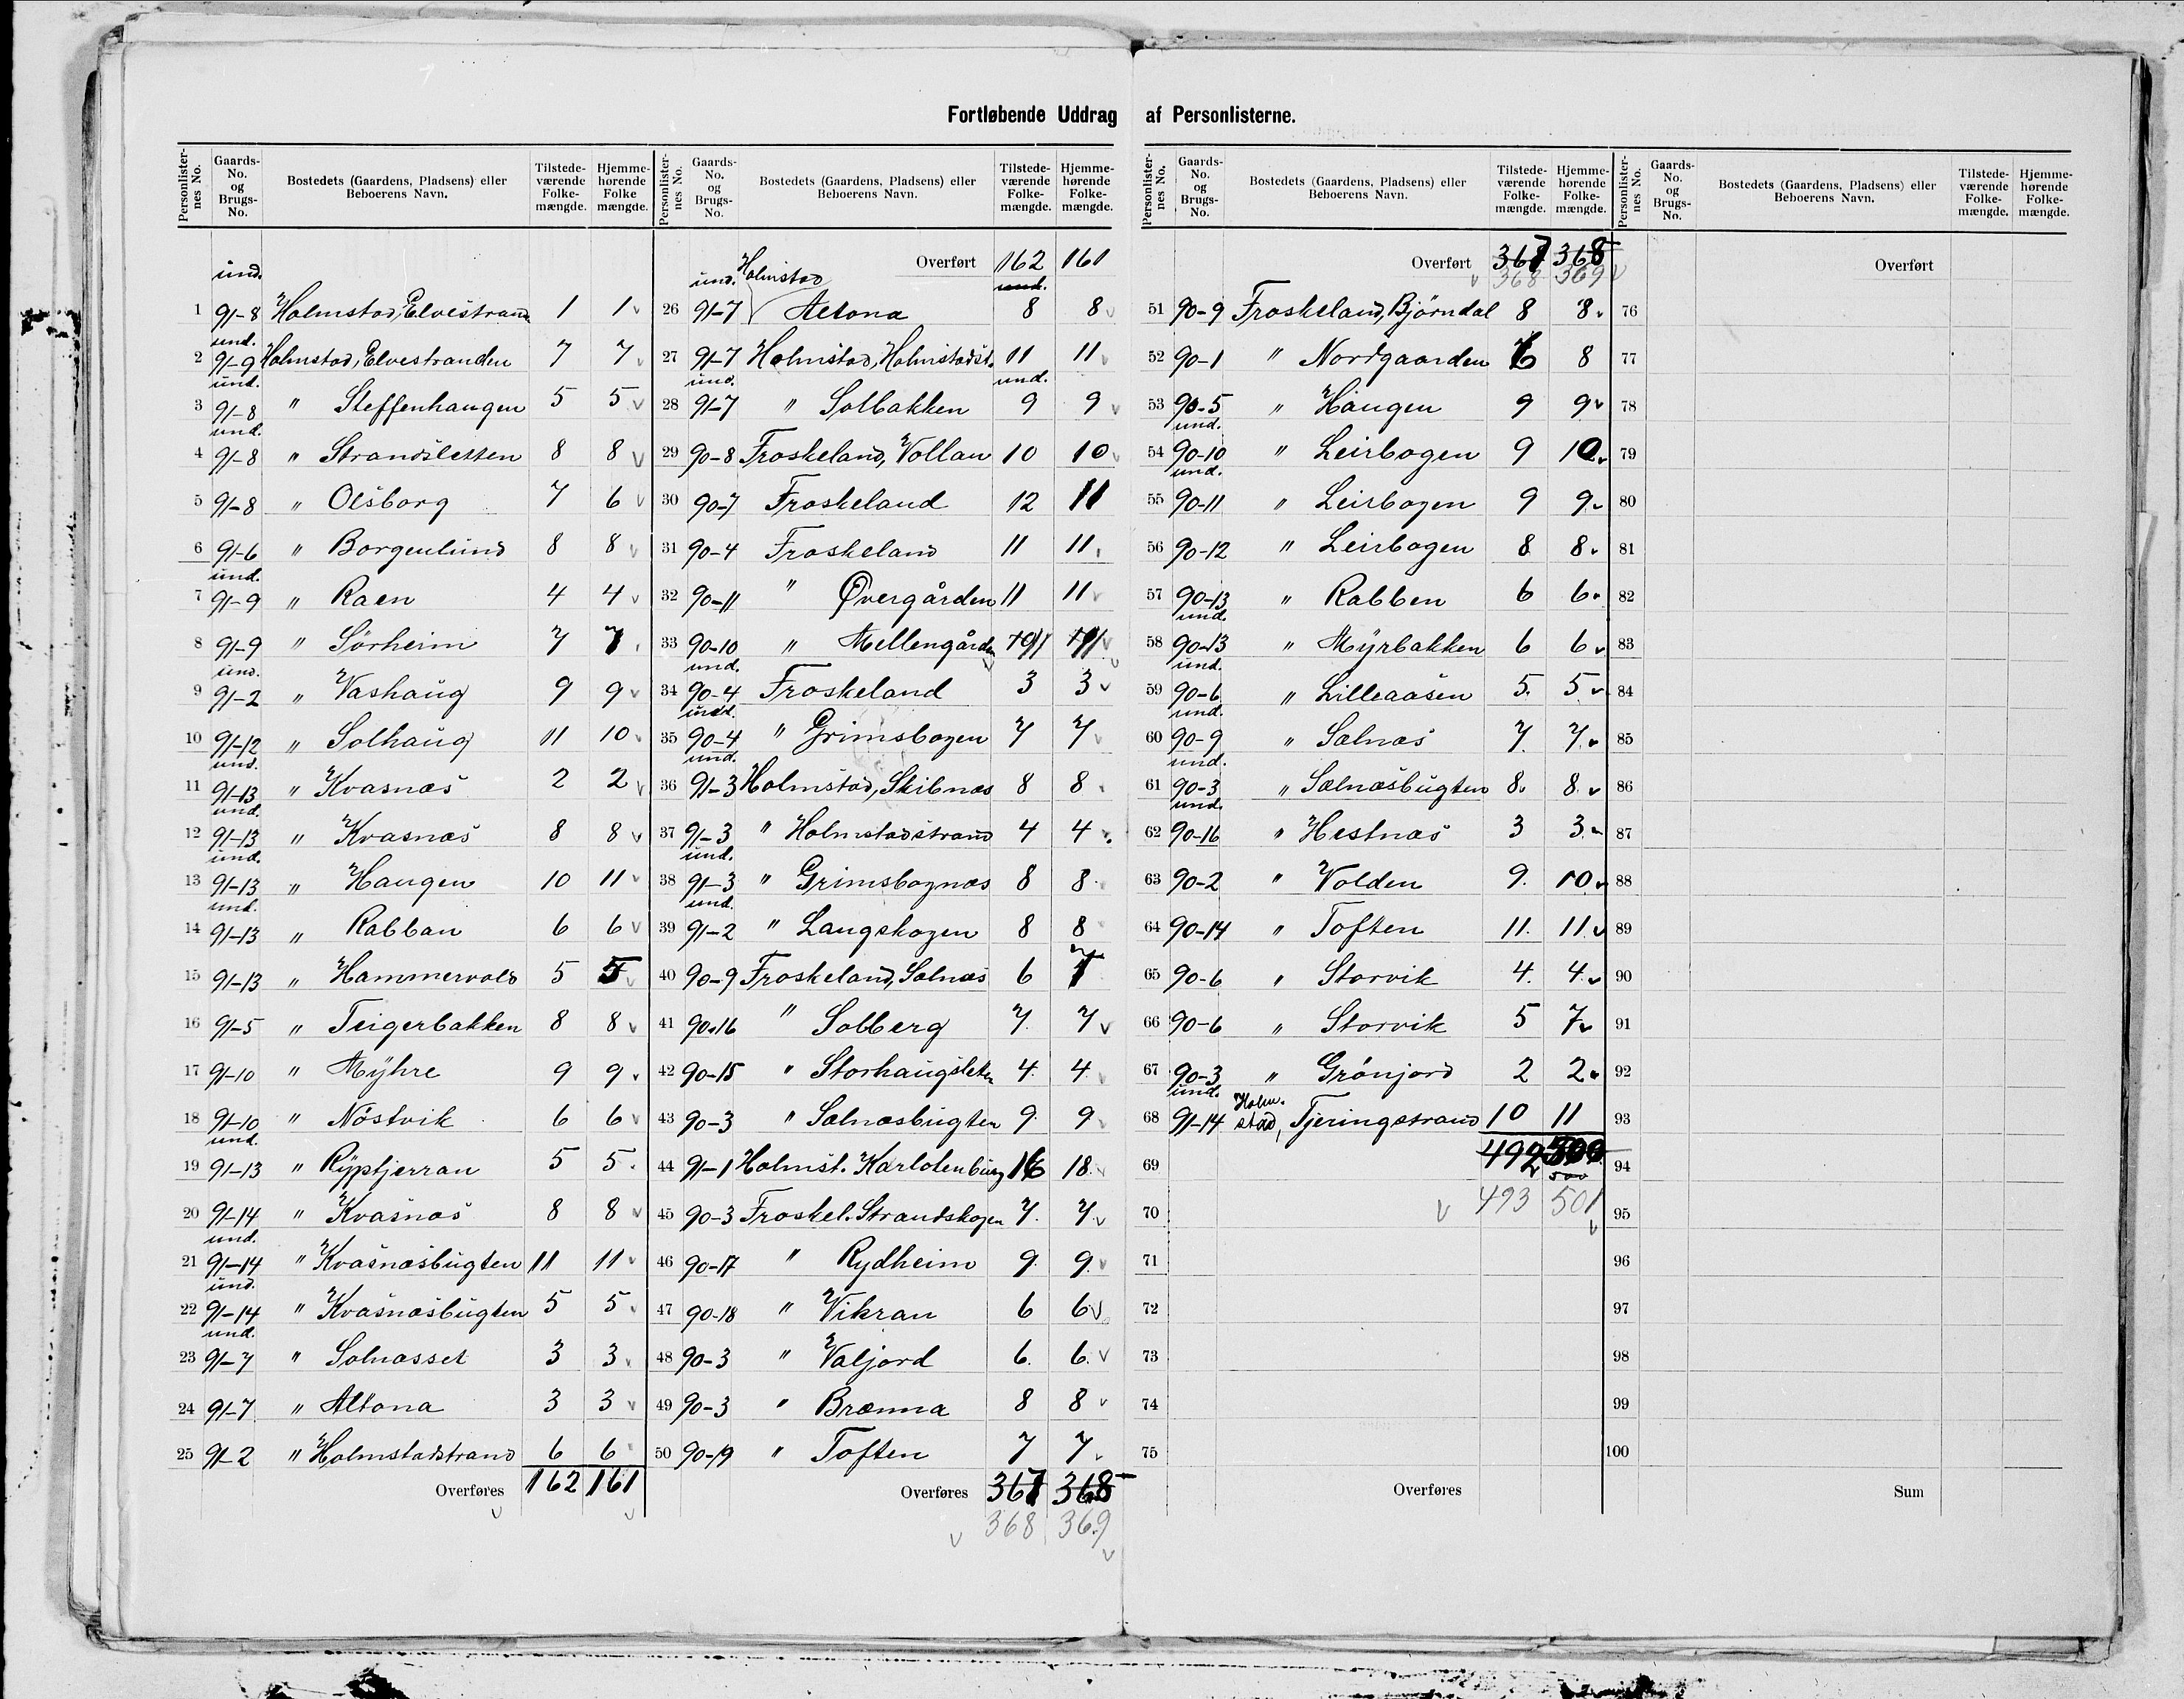 Fortløbende Uddrag af Personlisterne.
Personlisternes No. Gaards-No. og Brugs-No. Bostedets (Gaardens, Pladsens) eller Beboerens Navn. Tilstedeværende Folkemængde. Hjemmehørende Folke mængde.
1 und. 91-8 Holmstad, Elvestrand 1 1
2 und. 91-9 Holmstad, Elvestranden 7 7
3 und. 91-8 " Steffenhaugen 5 5
4 und. 91-8 " Strandsletten 8 8
5 91-8 " Olsborg 7 6
6 91-6 " Borgenlund 8 8
7 und. 91-9 " Raen 4 4
8 91-9 " Sørheim 7 7
9 und. 91-2 " Vashaug 9 9
10 91-12 " Solhaug 11 10
11 und. 91-13 " Kvasnæs 2 2
12 und. 91-13 " Kvasnæs 8 8
13 und. 91-13 " Haugen 10 11
14 und. 91-13 " Rabban 6 6
15 91-13 " Hammervold 5 5
16 91-5 " Teigerbakken 8 8
17 91-10 " Myhre 9 9
18 91-10 " Nøstvik 6 6
19 und. 91-13 " Ryptjerran 5 5
20 91-14 " Kvasnæs 8 8
21 und. 91-14 " Kvasnæsbugten 11 11
22 und. 91-14 " Kvasnæsbugten 5 5
23 und. 91-7 " Solnæsset 3 3
24 91-7 " Altona 3 3
25 91-2 " Holmstadstrand 6 6
Overføres 162 161
Personlisternes No. Gaards-No. og Brugs-No. Bostedets (Gaardens, Pladsens) eller Beboerens Navn. Tilstedeværende Folkemængde. Hjemmehørende Folkemængde.
Overført 162 161
26 und. 91-7 Holmstad Altona 8 8
27 91-7 Holmstad, Holmstadst. 11 11
28 und. 91-7 " Solbakken 9 9
29 90-8 Froskeland, Vollan 10 10
30 90-7 Froskeland 12 11
31 90-4 Froskeland 11 11
32 90-11 " Øvergården 11 11
33 90-10 " Mellengården 11 11
34 und. 90-4 Froskeland 3 3
35 und. 90-4 " Grimsbogen 7 7
36 und. 91-3 Holmstad, Skibnæs 8 8
37 91-3 " Holmstadstrand 4 4
38 und. 91-3 " Grimsbognæs 8 8
39 und. 91-2 " Langskogen 8 8
40 90-9 Froskeland, Solnæs 6 7
41 90-16 " Solberg 7 7
42 90-15 " Storhaugsleten 4 4
43 90-3 " Selnæsbugten 9 9
44 91-1 Holmst. Karlotenburg 16 18
45 90-3 Froskel. Strandskogen 7 7
46 90-17 " Rydheim 9 9
47 90-18 " Vikran 6 6
48 90-3 " Valjord 6 6
49 90-3 " Brænna 8 8
50 90-19 " Toften 7 7
Overføres 367 368
368 369
Personlisternes No. Gaards-No. og Brugs-No. Bostedets (Gaardens, Pladsens) eller Beboerens Navn. Tilstedeværende Folkemængde. Hjemmehørende Folkemængde.
Overført 367 368
368 369
51 90-9 Froskeland, Bjørndal 8 8
52 90-1 " Nordgaarden 6 8
53 90-5 " Haugen 9 9
54 und. 90-10 " Leirbogen 9 10
55 und. 90-11 " Leirbogen 9 9
56 90-12 " Leirbogen 8 8
57 90-13 " Rabben 6 6
58 und. 90-13 " Myrbakken 6 6
59 und. 90-6 " Lilleaasen 5 5
60 und. 90-9 " Sælnæs 7 7
61 und. 90-3 " Sælnæsbugten 8 8
62 und. 90-16 " Hestnæs 3 3
63 90-2 " Volden 9 10
64 90-14 " Toften 11 11
65 90-6 " Storvik 4 4
66 90-6 " Storvik 5 7
67 90-3 " Grønjord 2 2
68 und. 91-14 Holmstad, Tjeringstrand 10 11
69 492 500
500
70 493 501
71
72
73
74
75
Overføres
Personlisternes No. Gaards-No. og Brugs-No. Bostedets (Gaardens, Pladsens) eller Beboerens Navn. Tilstedeværende Folkemængde. Hjemmehørende Folkemængde.
Overført
76
77
78
79
80
81
82
83
84
85
86
87
88
89
90
91
92
93
94
95
96
97
98
99
100
Sum